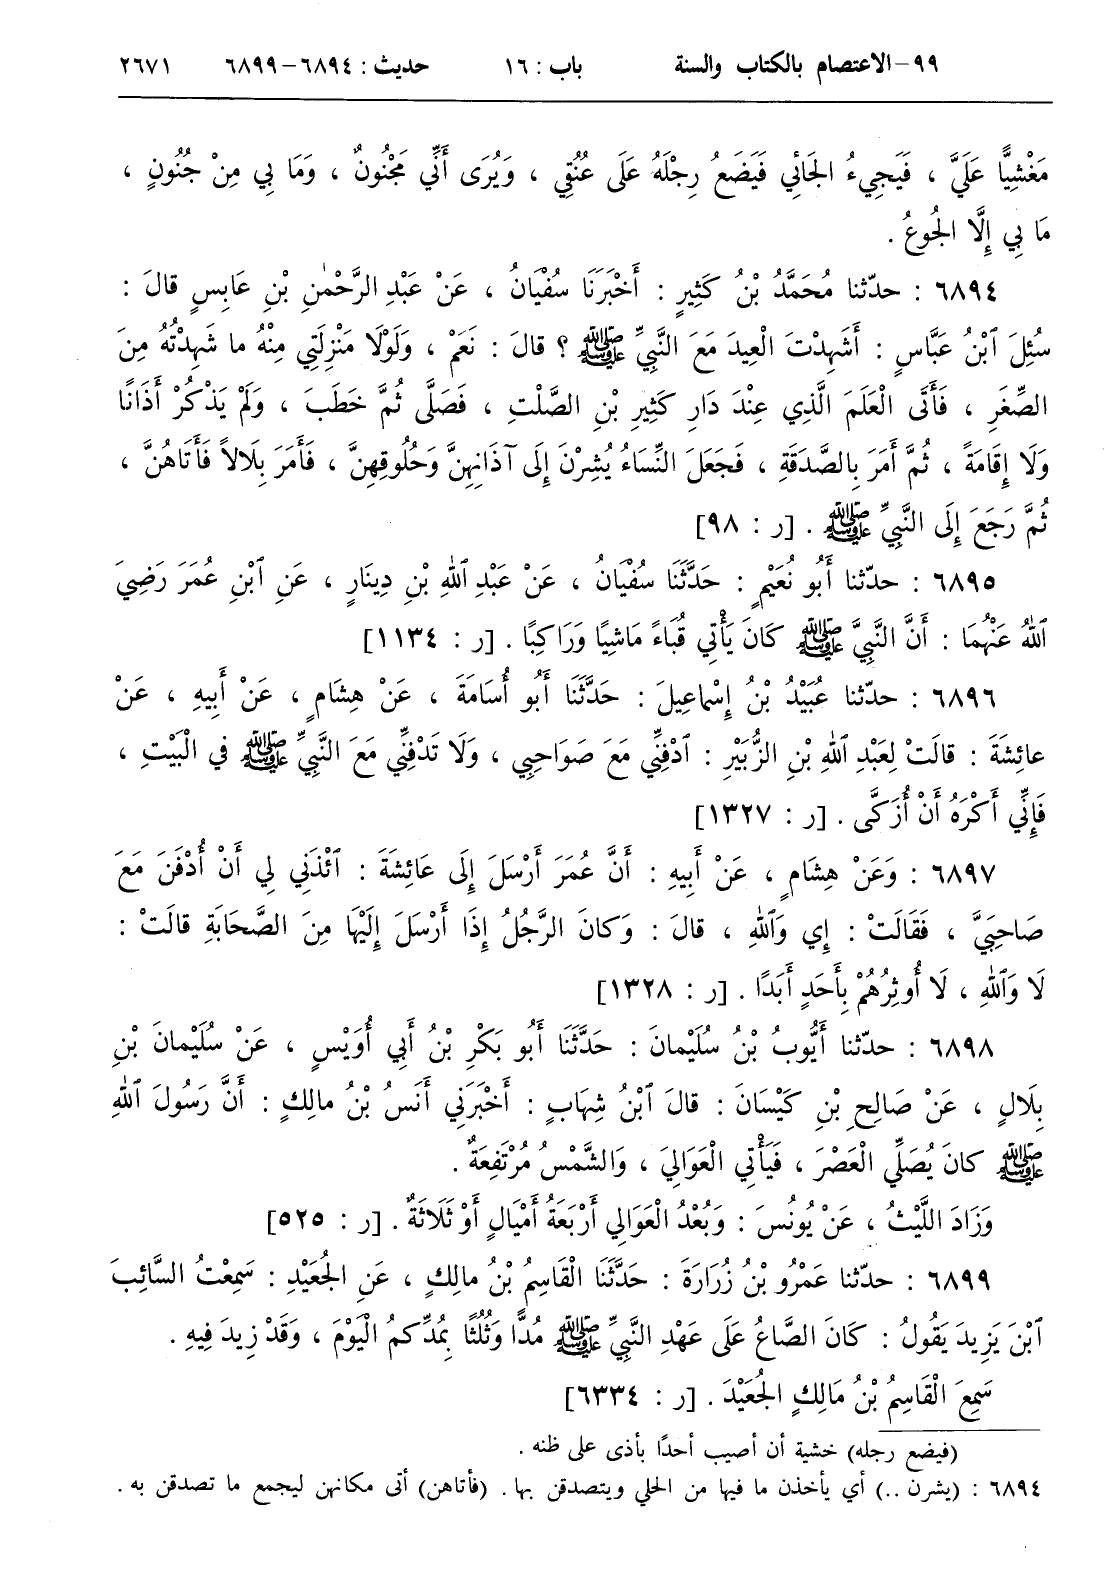 ٩٩-الاعتصام بالكتاب والسنة باب : ١٦ حديث : ٦٨٩٤-٦٨٩٩ ٢٦٧١
مَغْشِيًّا عَلَيَّ ، فَيَجِيءُ الجَائِي فَيَضَعُ رِجْلَهُ عَلَى عُنُقِي ، وَيُرَى أَنِّي مَجْنُونٌ ، وَمَا بِي مِنْ جُنُونٍ ،
مَا بِي إِلَّا الجُوعُ .
٦٨٩٤ : حدّثنا مُحَمَّدُ بْنُ كَثِيرٍ : أَخْبَرَنَا سُفْيَانُ ، عَنْ عَبْدِ الرَّحْمٰنِ بْنِ عَابِسٍ قالَ :
سُئِلَ ٱبْنُ عَبَّاسٍ : أَشَهِدْتَ الْعِيدَ مَعَ النَّبِيِّ ﷺ ؟ قالَ : نَعَمْ ، وَلَوْلَا مَنْزِلَتِي مِنْهُ ما شَهِدْتُهُ مِنَ
الصِّغَرِ ، فَأَتَى الْعَلَمَ الَّذِي عِنْدَ دَارِ كَثِيرِ بْنِ الصَّلْتِ ، فَصَلَّى ثُمَّ خَطَبَ ، وَلَمْ يَذْكُرْ أَذَانًا
وَلَا إِقَامَةً ، ثُمَّ أَمَرَ بِالصَّدَقَةِ ، فَجَعَلَ النِّسَاءُ يُشِرْنَ إِلَى آذَانِهِنَّ وَحُلُوقِهِنَّ ، فَأَمَرَ بِلَالاً فَأَتَاهُنَّ ،
ثُمَّ رَجَعَ إِلَى النَّبِيِّ ﷺ . [ر : ٩٨]
٦٨٩٥ : حدّثنا أَبُو نُعَيْمٍ : حَدَّثَنَا سُفْيَانُ ، عَنْ عَبْدِ ٱللهِ بْنِ دِينَارٍ ، عَنِ ٱبْنِ عُمَرَ رَضِيَ
ٱللهُ عَنْهُمَا : أَنَّ النَّبِيَّ ﷺ كَانَ يَأْتِي قُبَاءً مَاشِيًا وَرَاكِبًا . [ر : ١١٣٤]
٦٨٩٦ : حدّثنا عُبَيْدُ بْنُ إِسْماعِيلَ : حَدَّثَنَا أَبُو أُسَامَةَ ، عَنْ هِشَامٍ ، عَنْ أَبِيهِ ، عَنْ
عائِشَةَ : قالَتْ لِعَبْدِ ٱللهِ بْنِ الزُّبَيْرِ : ٱدْفِنِّي مَعَ صَوَاحِبِي ، وَلَا تَدْفِنِّي مَعَ النَّبِيِّ ﷺ في الْبَيْتِ ،
فَإِنِّي أَكْرَهُ أَنْ أُزَكَّى . [ر : ١٣٢٧]
٦٨٩٧ : وَعَنْ هِشَامٍ ، عَنْ أَبِيهِ : أَنَّ عُمَرَ أَرْسَلَ إِلَى عَائِشَةَ : ٱئْذَنِي لِي أَنْ أُدْفَنَ مَعَ
صَاحِبَيَّ ، فَقَالَتْ : إِي وَٱللهِ ، قالَ : وَكانَ الرَّجُلُ إِذَا أَرْسَلَ إِلَيْهَا مِنَ الصَّحَابَةِ قالَتْ :
لَا وَٱللهِ ، لَا أُوثِرُهُمْ بِأَحَدٍ أَبَدًا . [ر : ١٣٢٨]
٦٨٩٨ : حدّثنا أَيُّوبُ بْنُ سُلَيْمانَ : حَدَّثَنَا أَبُو بَكْرِ بْنُ أَبِي أُوَيْسٍ ، عَنْ سُلَيْمانَ بْنِ
بِلَالٍ ، عَنْ صَالِحِ بْنِ كَيْسَانَ : قالَ ٱبْنُ شِهَابٍ : أَخْبَرَنِي أَنَسُ بْنُ مالِكٍ : أَنَّ رَسُولَ ٱللهِ
ﷺ كانَ يُصَلِّي الْعَصْرَ ، فَيَأْتِي الْعَوَالِيَ ، وَالشَّمْسُ مُرْتَفِعَةٌ .
وَزَادَ اللَّيْثُ ، عَنْ يُونُسَ : وَبُعْدُ الْعَوَالِي أَرْبَعَةُ أَمْيَالٍ أَوْ ثَلَاثَةٌ . [ر : ٥٢٥]
٦٨٩٩ : حدّثنا عَمْرُو بْنُ زُرَارَةَ : حَدَّثَنَا الْقَاسِمُ بْنُ مالِكٍ ، عَنِ الجُعَيْدِ : سَمِعْتُ السَّائِبَ
ٱبْنَ يَزِيدَ يَقُولُ : كانَ الصَّاعُ عَلَى عَهْدِ النَّبِيِّ ﷺ مُدًّا وَثُلُثًا بِمُدِّكمُ الْيَوْمَ ، وَقَدْ زِيدَ فِيهِ .
سَمِعَ الْقَاسِمُ بْنُ مَالِكٍ الجُعَيْدَ . [ر : ٦٣٣٤]
(فيضع رجله) خشية أن أصيب أحدًا بأذى على ظنه .
٦٨٩٤ : (يشرن ..) أي يأخذن ما فيها من الحلي ويتصدقن بها . (فأتاهن) أتى مكانهن ليجمع ما تصدقن به .